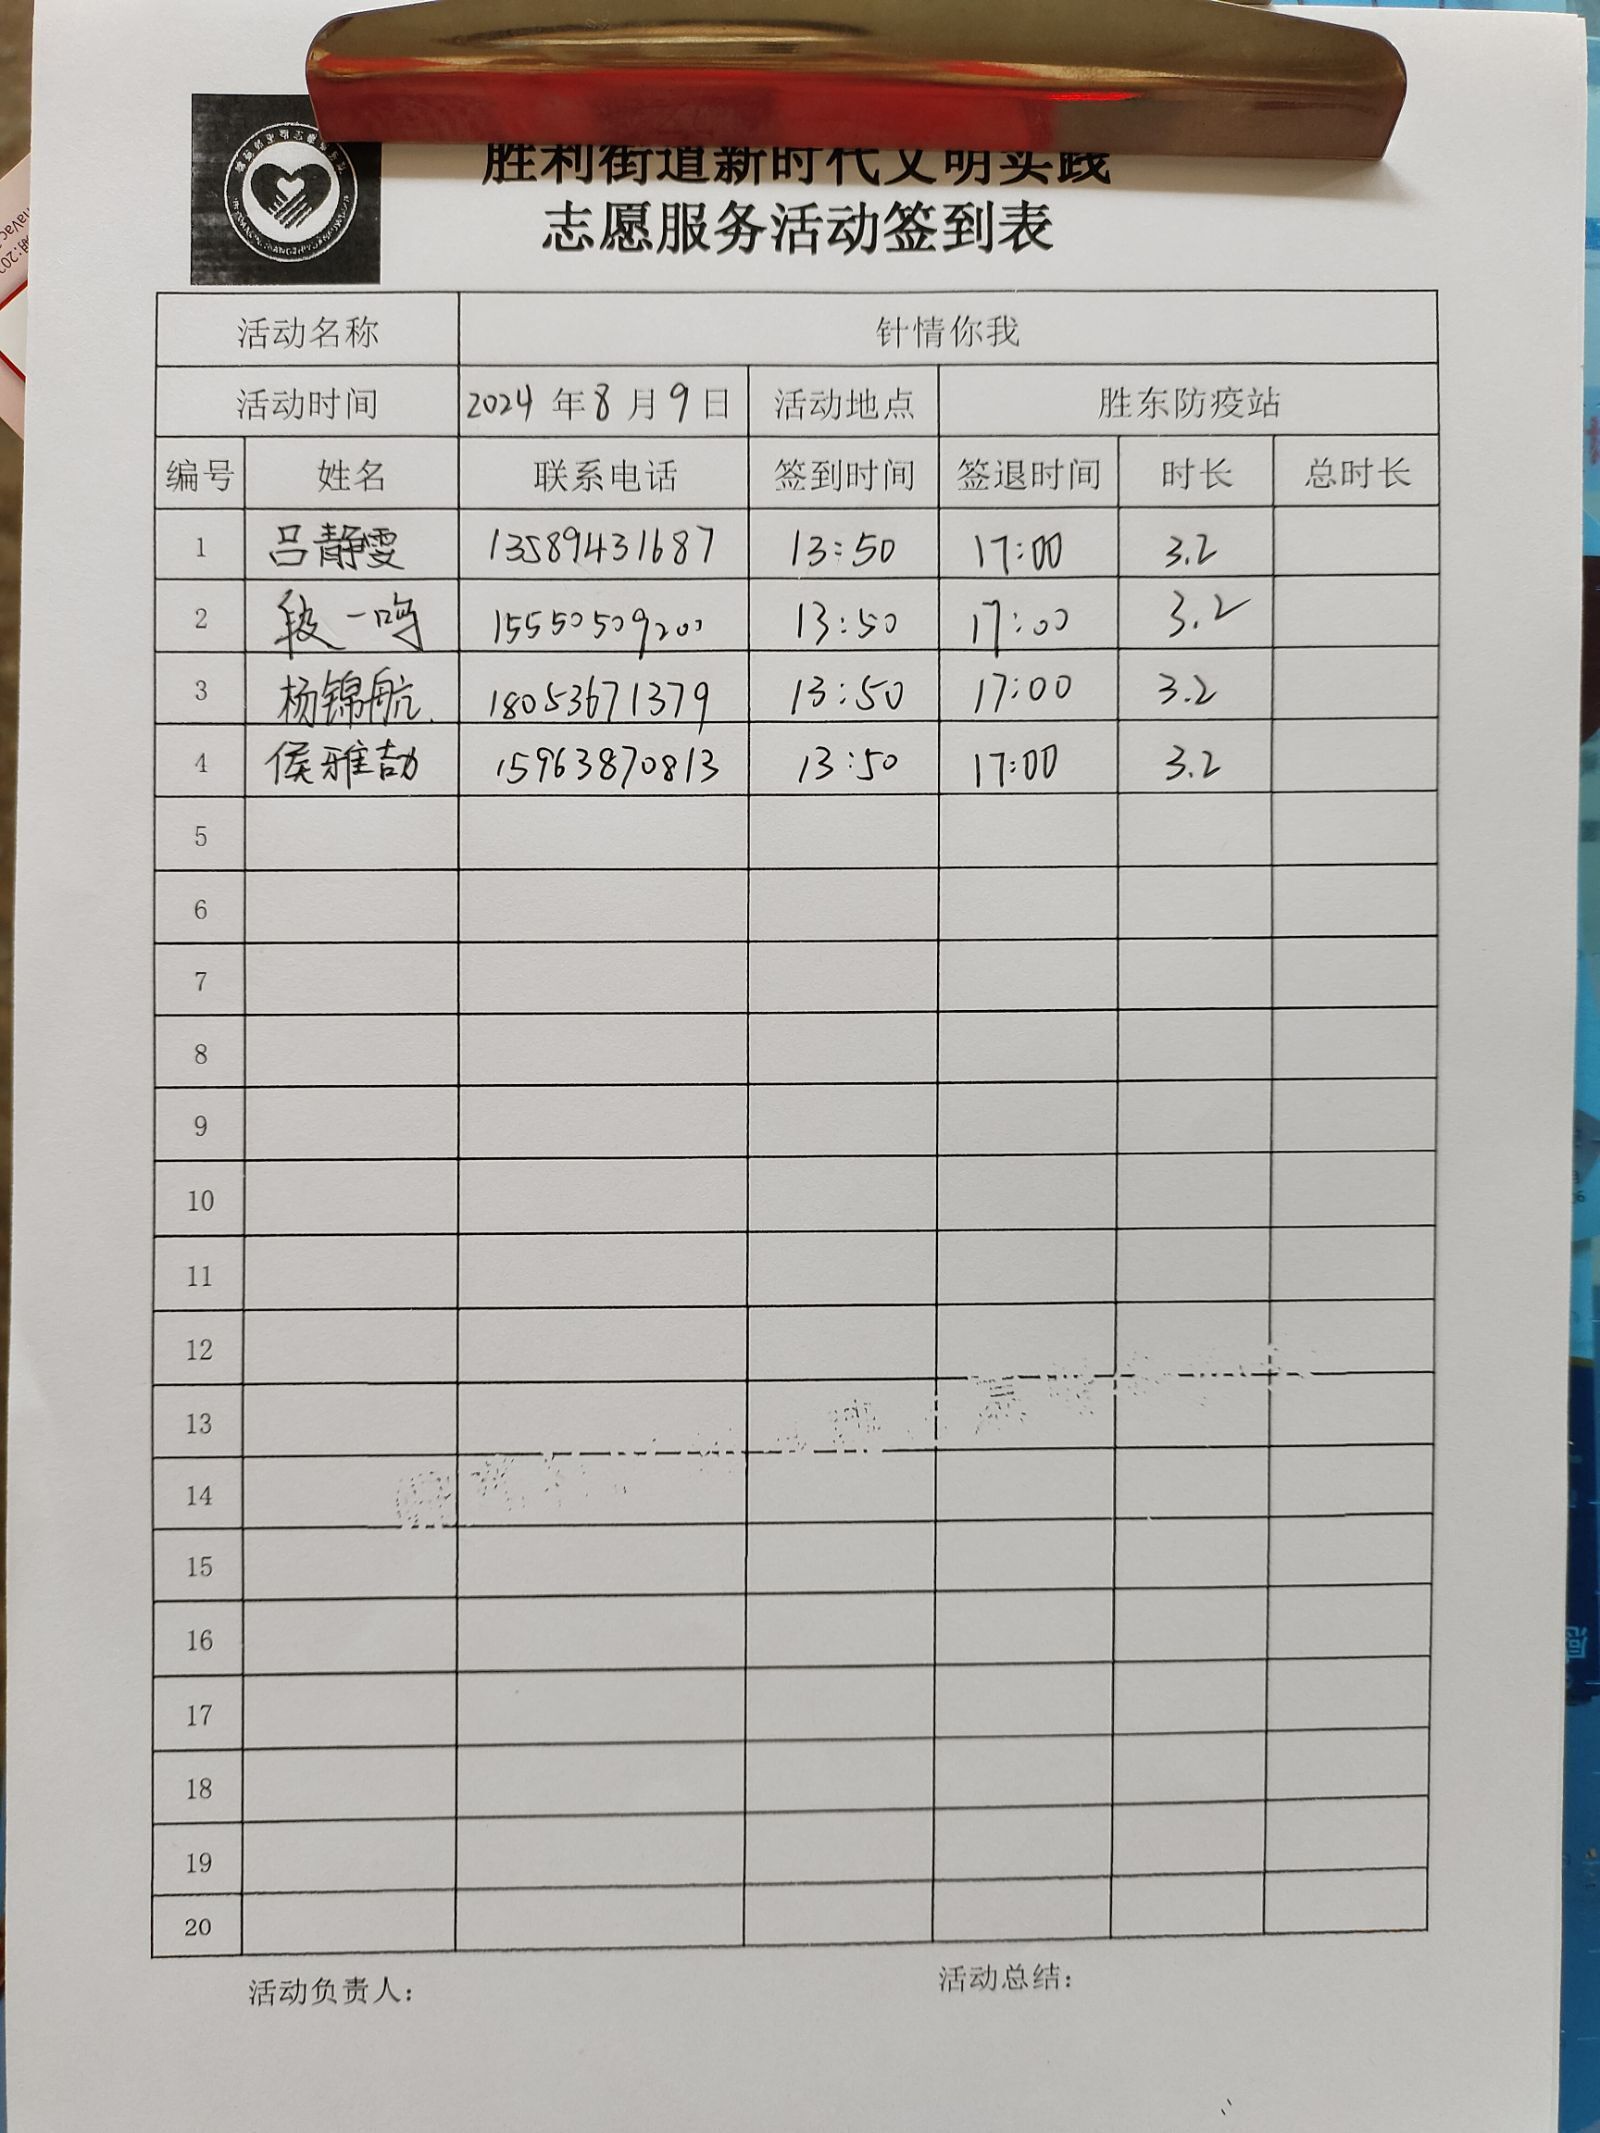 胜利街道新时代文明实践
志愿服务活动签到表
活动名称 针情你我
活动时间 2024年8月9日 活动地点 胜东防疫站
编号 姓名 联系电话 签到时间 签退时间 时长 总时长
1 吕静雯 13589431687 13:50 17:00 3.2
2 段一鸣 15550509200 13:50 17:00 3.2
3 杨锦航. 18053671379 13:50 17:00 3.2
4 侯雅劼 15963870813 13:50 17:00 3.2
5
6
7
8
9
10
11
12
13
14
15
16
17
18
19
20
活动负责人： 活动总结：